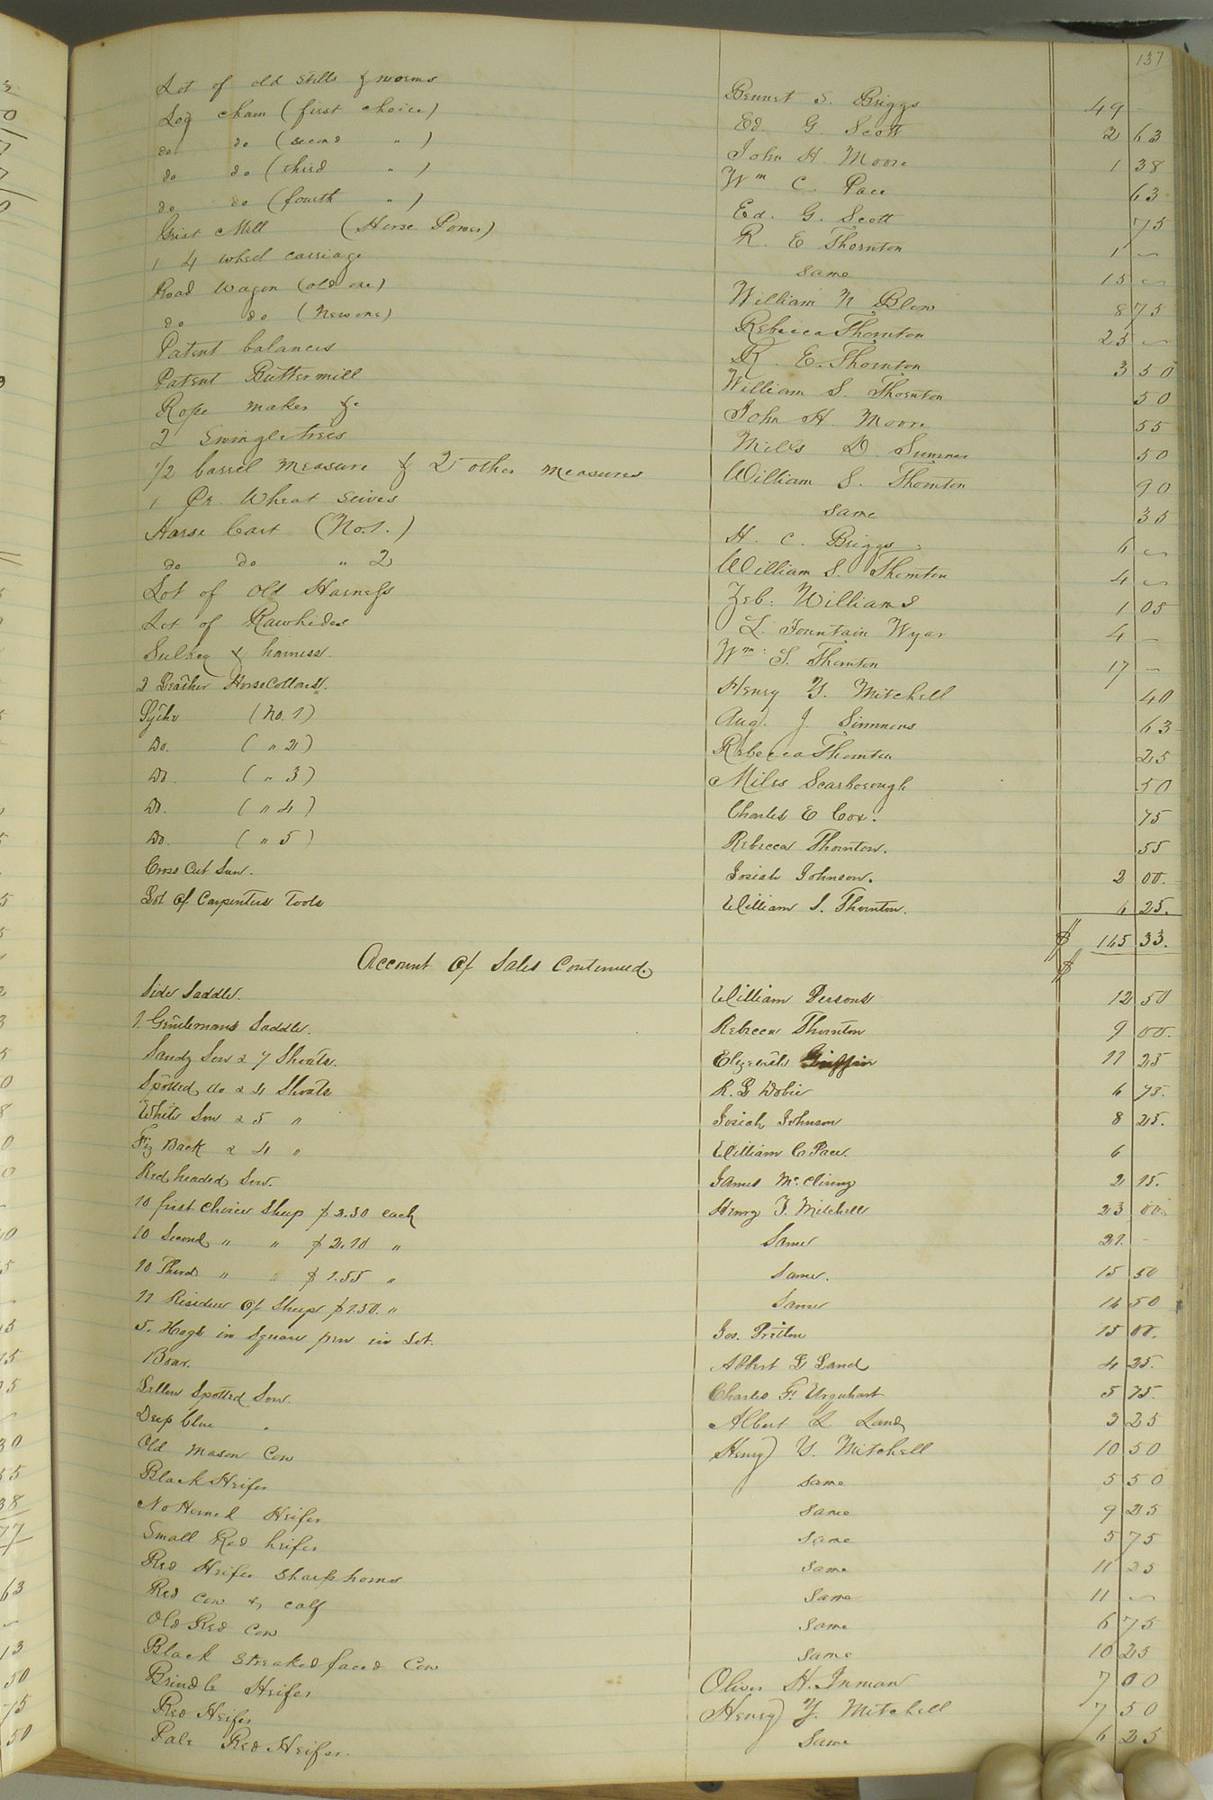 137
Lot of old Stills & worms Bennet S. Briggs 49 –
Log chain (first choice) Ed. G Scott 2 63
do do (second " ) John H Moore 1 38
do do (third " ) Wm C Pace 63
do do (fourth " ) Ed. G. Scott 75
Grist Mill (Horse Power) R. E Thornton 1 –
1 4 wheel carriage same 15 –
Road Wagon (old one) William N Blow 8 75
do do (New one) Rebecca Thornton 25 –
Patent balances R. E. Thornton 3 50
Patent Buttermill William S. Thornton 50
Rope maker &c John H. Moore 55
2 Swingletrees Mills D Sumner 50
1/2 barrel measure & 2 other measures William S. Thornton 90
1 Pr. Wheat Seives same 35
Horse Cart (No. 1.) H. C. Briggs 6 –
do do " 2 William S. Thornton 4 –
Lot of old Harness Zeb. Williams 1 05
Lot of Rawhides L. Fountain Wyar 4 –
Sulkey & harness. Wm. S. Thornton 17 –
2 Leather Horse Collars. Henry Y. Mitchell 40
Sythe (No. 1) Aug. J. Simmons 63
Do. ( " 2) Rebecca Thornton 25
Do. ( " 3) Miles Scarborough 50
Do. ( " 4) Charles E Cox. 75
Do. ( " 5) Rebecca Thornton. 55
Cross Cut Saw. Josiah Johnson. 2 00.
Lot of Carpenters Tools William S. Thornton. 6 25.
$ 165 33.
Account of Sales Continued. $
Side Saddle. William Persons 12 50
1 Gentlemans Saddle. Rebecca Thornton 9 00.
Sandy Sow & 7 Shoats. Elizabeth Griffin 11 25
Spotted do & 4 Shoats R. G Dobie 6 75.
White Sow & 5 " Josiah Johnson 8 25.
Back & 4 " William C Pace. 6
Red headed Sow. James 2 15.
10 first choice Sheep $2.30 each Henry Y. Mitchell 23 00.
10 Second " " $2.10 " Same 21. –
10 Third " " $1.55 " Same. 15 50
11 Residue of Sheep $1.50. " Same 16 50
5. Hogs in Square pen in Lot. Jos. Pretlow 15 00.
Boar. Albert L Land 4 25.
Yellow Spotted Sow. Charles F. Urquhart 5 75.
Deep blue " Albert L Land 3 25
Old Mason Cow Henry Y. Mitchell 10 50
Black Heifer same 5 50
No Horned Heifer same 9 25
Small Red heifer same 5 75
Red Heifer sharp horns same 11 25
Red Cow & calf same 11 –
Old Red Cow same 6 75
Black Streaked faced Cow same 10 25
Brindle Heifer Oliver H. Inman 7 00
Red Heifer Henry Y. Mitchell 7 50
Pale Red Heifer. Same 6 25